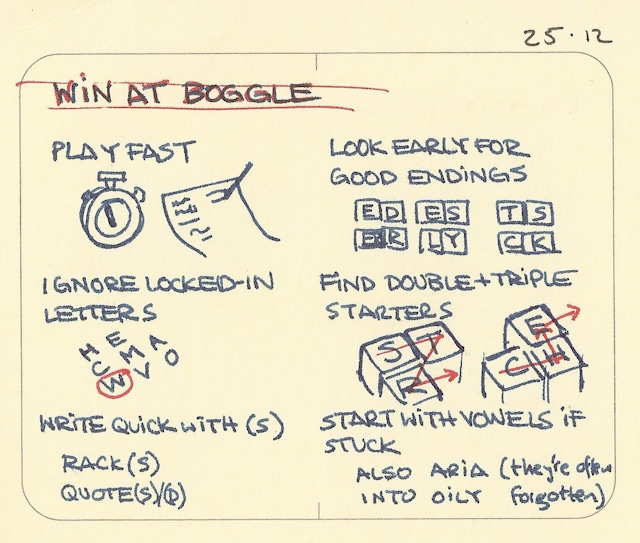 25·12
WIN AT BOGGLE
PLAY FAST
LOOK EARLY FOR
GOOD ENDINGS
ED ES TS
ER LY CK
IGNORE LOCKED-IN
LETTERS
H E A
U M O
W V
FIND DOUBLE + TRIPLE
STARTERS
S T
R
E
C H
WRITE QUICK WITH (S)
RACK(S)
QUOTE(S)/(D)
START WITH VOWELS IF
STUCK
ALSO ARIA (they're often
INTO OILY forgotten)